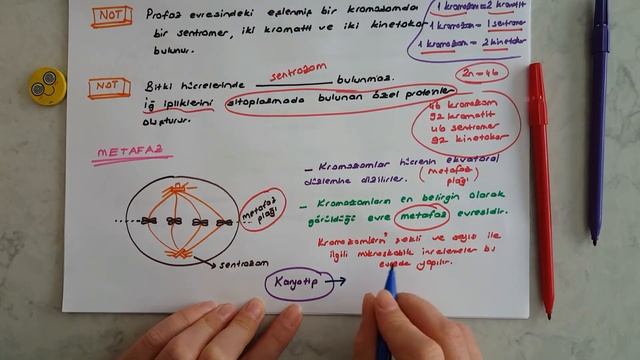 NOT
Profaz evresindeki eşlenmiş bir kromozomda
bir sentromer, iki kromatit ve iki kinetokor
bulunur.
1 kromozom = 2 kromatit
1 kromozom = 1 sentromer
1 kromozom = 2 kinetokor
NOT
Bitki hücrelerinde sentrozom bulunmaz.
İğ ipliklerini sitoplazmada bulunan özel proteinler
oluşturur.
2n=46
46 kromozom
92 kromatit
46 sentromer
92 kinetokor
METAFAZ
- Kromozomlar hücrenin ekvatoral
düzlemine dizilirler. (metafaz
plağı)
- Kromozomların en belirgin olarak
görüldüğü evre metafaz evresidir.
Kromozomların şekli ve sayısı ile
ilgili mikroskobik incelemeler bu
evrede yapılır.
metafaz
plağı
sentrozom
Karyotip →